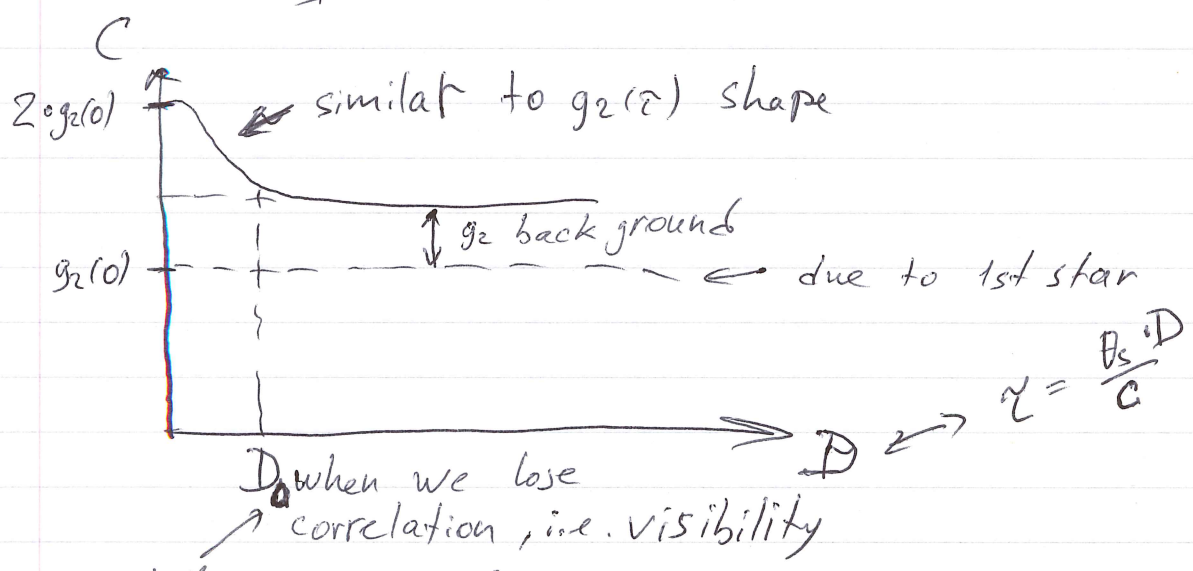 C
2•g₂(0)
similar to g₂(τ) shape
g₂ background
g₂(0)
due to 1st star
τ = θₛ·D/C
D
D₀ when we lose
correlation, i.e. visibility